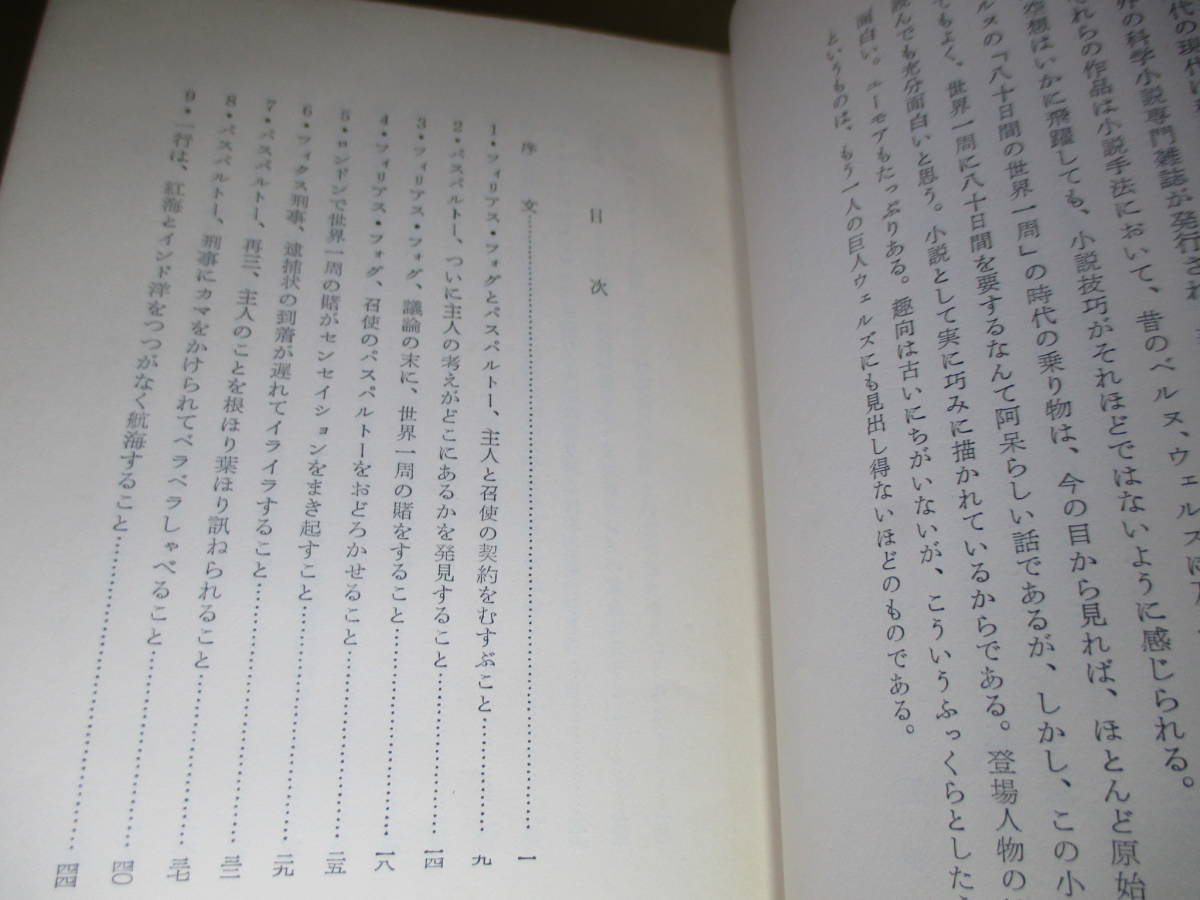 代の現代に
外の科学小説専門雑誌が発行され
それらの作品は小説手法において、昔のベルヌ、ウェルズに
空想はいかに飛躍しても、小説技巧がそれほどではないように感じられる。
ルヌの「八十日間の世界一周」の時代の乗り物は、今の目から見れば、ほとんど原始
てもよく、世界一周に八十日間を要するなんて阿呆らしい話であるが、しかし、この小
読んでも充分面白いと思う。小説として実に巧みに描かれているからである。登場人物の
面白い。ユーモアもたっぷりある。趣向は古いにちがいないが、こういうふっくらとした
というものは、もう一人の巨人ウェルズにも見出し得ないほどのものである。
目次
序文……一
1・フィリアス・フォグとパスパルトー、主人と召使の契約をむすぶこと……九
2・パスパルトー、ついに主人の考えがどこにあるかを発見すること……一四
3・フィリアス・フォグ、議論の末に、世界一周の賭をすること……一八
4・フィリアス・フォグ、召使のパスパルトーをおどろかせること……二五
5・ロンドンで世界一周の賭がセンセイションをまき起すこと……二九
6・フィクス刑事、逮捕状の到着が遅れてイライラすること……三二
7・パスパルトー、再三、主人のことを根ほり葉ほり訊ねられること……三七
8・パスパルトー、刑事にカマをかけられてベラベラしゃべること……四〇
9・一行は、紅海とインド洋をつつがなく航海すること……四四